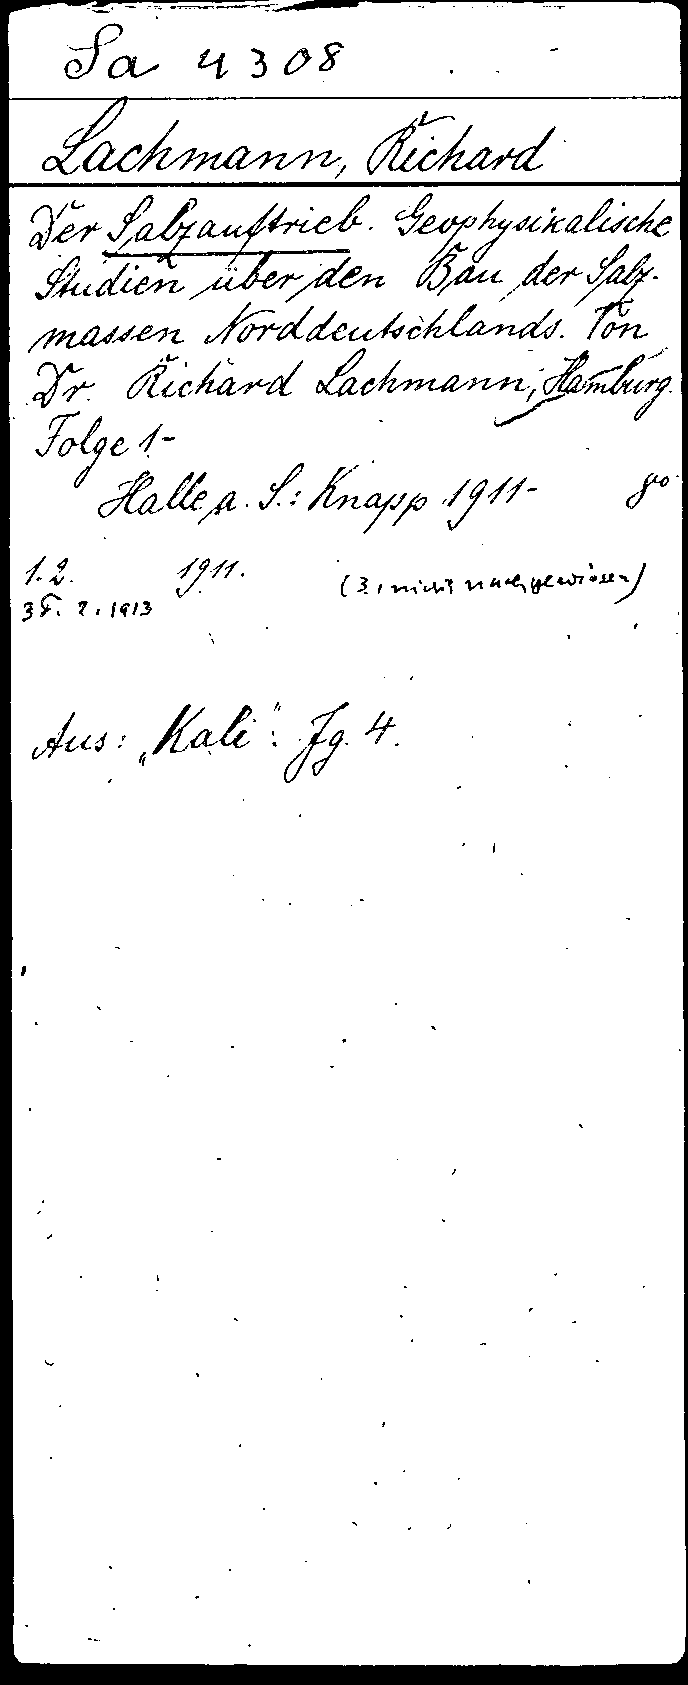 Sa 4308
Lachmann, Richard
Der Salzauftrieb. Geophysikalische
Studien über den Bau der Salz-
massen Norddeutschlands. Von
Dr. Richard Lachmann, Hamburg.
Folge 1-
Halle a. S.: Knapp 1911- 8vo
1.2. 1911. (3. nicht nachgewiesen)
3 F. 2. 1913
Aus: „Kali“. Jg. 4.